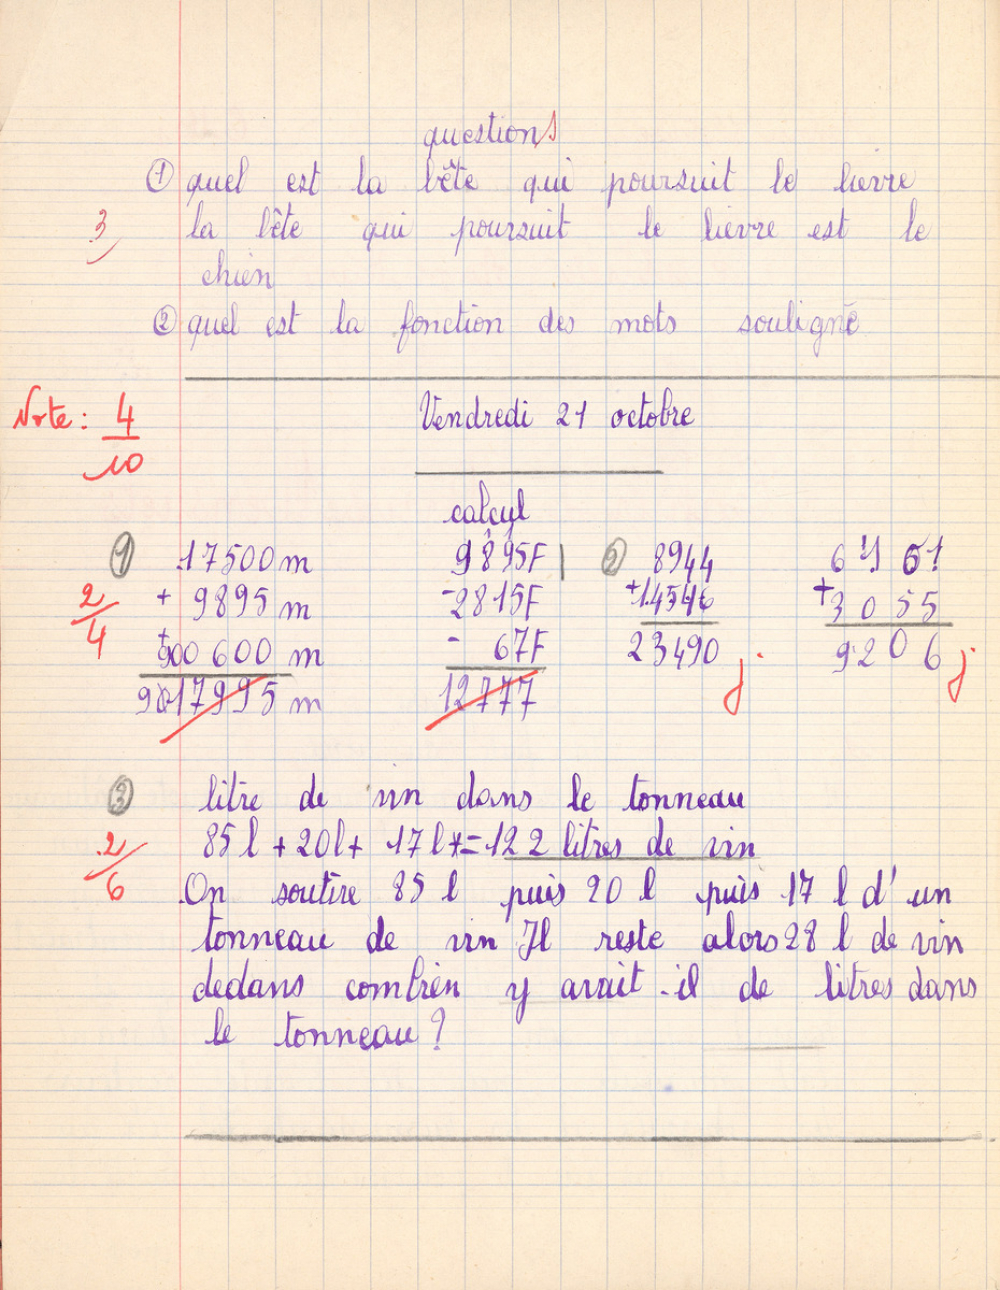 questions
① quel est la bête qui poursuit le lievre
3 la bête qui poursuit le lievre est le
chien
② quel est la fonction des mots souligné
Note : 4/10
Vendredi 21 octobre
calcul
① 17500 m 9895F | ② 8944 6151
+ 9895 m -2815F +14546 +3055
+900 600 m - 67F 23490 j 9206 j
2/4
9017995 m 12777
③ litre de vin dans le tonneau
2/6 85 l + 20l + 17 l = 122 litres de vin
On soutire 85 l puis 20 l puis 17 l d'un
tonneau de vin Il reste alors 28 l de vin
dedans combien y avait-il de litres dans
le tonneau ?